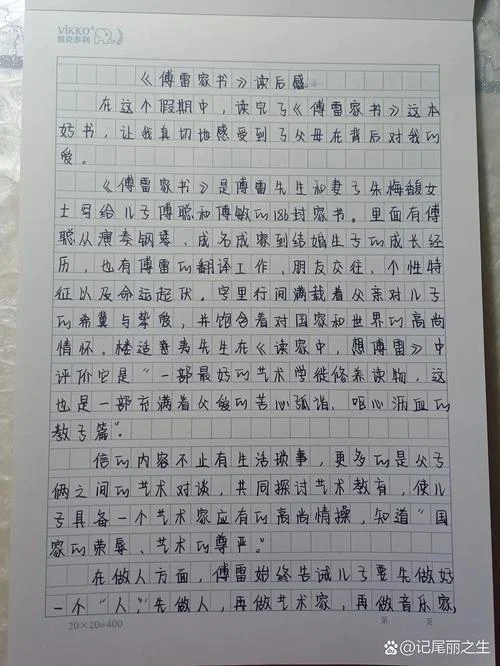 VIKKO®
维克多利
《傅雷家书》读后感
在这个假期中，读完了《傅雷家书》这本
好书，让我真切地感受到了父母在背后对我的
爱。
《傅雷家书》是傅雷先生和妻子朱梅馥女
士写给儿子傅聪和傅敏的186封家书。里面有傅
聪从演奏钢琴、成名成家到结婚生子的成长经
历，也有傅雷的翻译工作、朋友交往、个性特
征以及命运起伏。字里行间满载着父亲对儿子
的希冀与挚爱，并饱含着对国家和世界的高尚
情怀。楼适夷先生在《读家中，想傅雷》中
评价它是“一部最好的艺术学徒修养读物，这
也是一部充满着父爱的苦心孤诣、呕心沥血的
教子篇”。
信的内容不止有生活琐事，更多的是父子
俩之间的艺术对谈，共同探讨艺术教育，使儿
子具备一个艺术家应有的高尚情操，知道“国
家的荣辱、艺术的尊严。”
在做人方面，傅雷始终告诫儿子要先做好
一个“人”，先做人，再做艺术家，再做音乐家，
20×20=400
第 页
@记尾丽之生